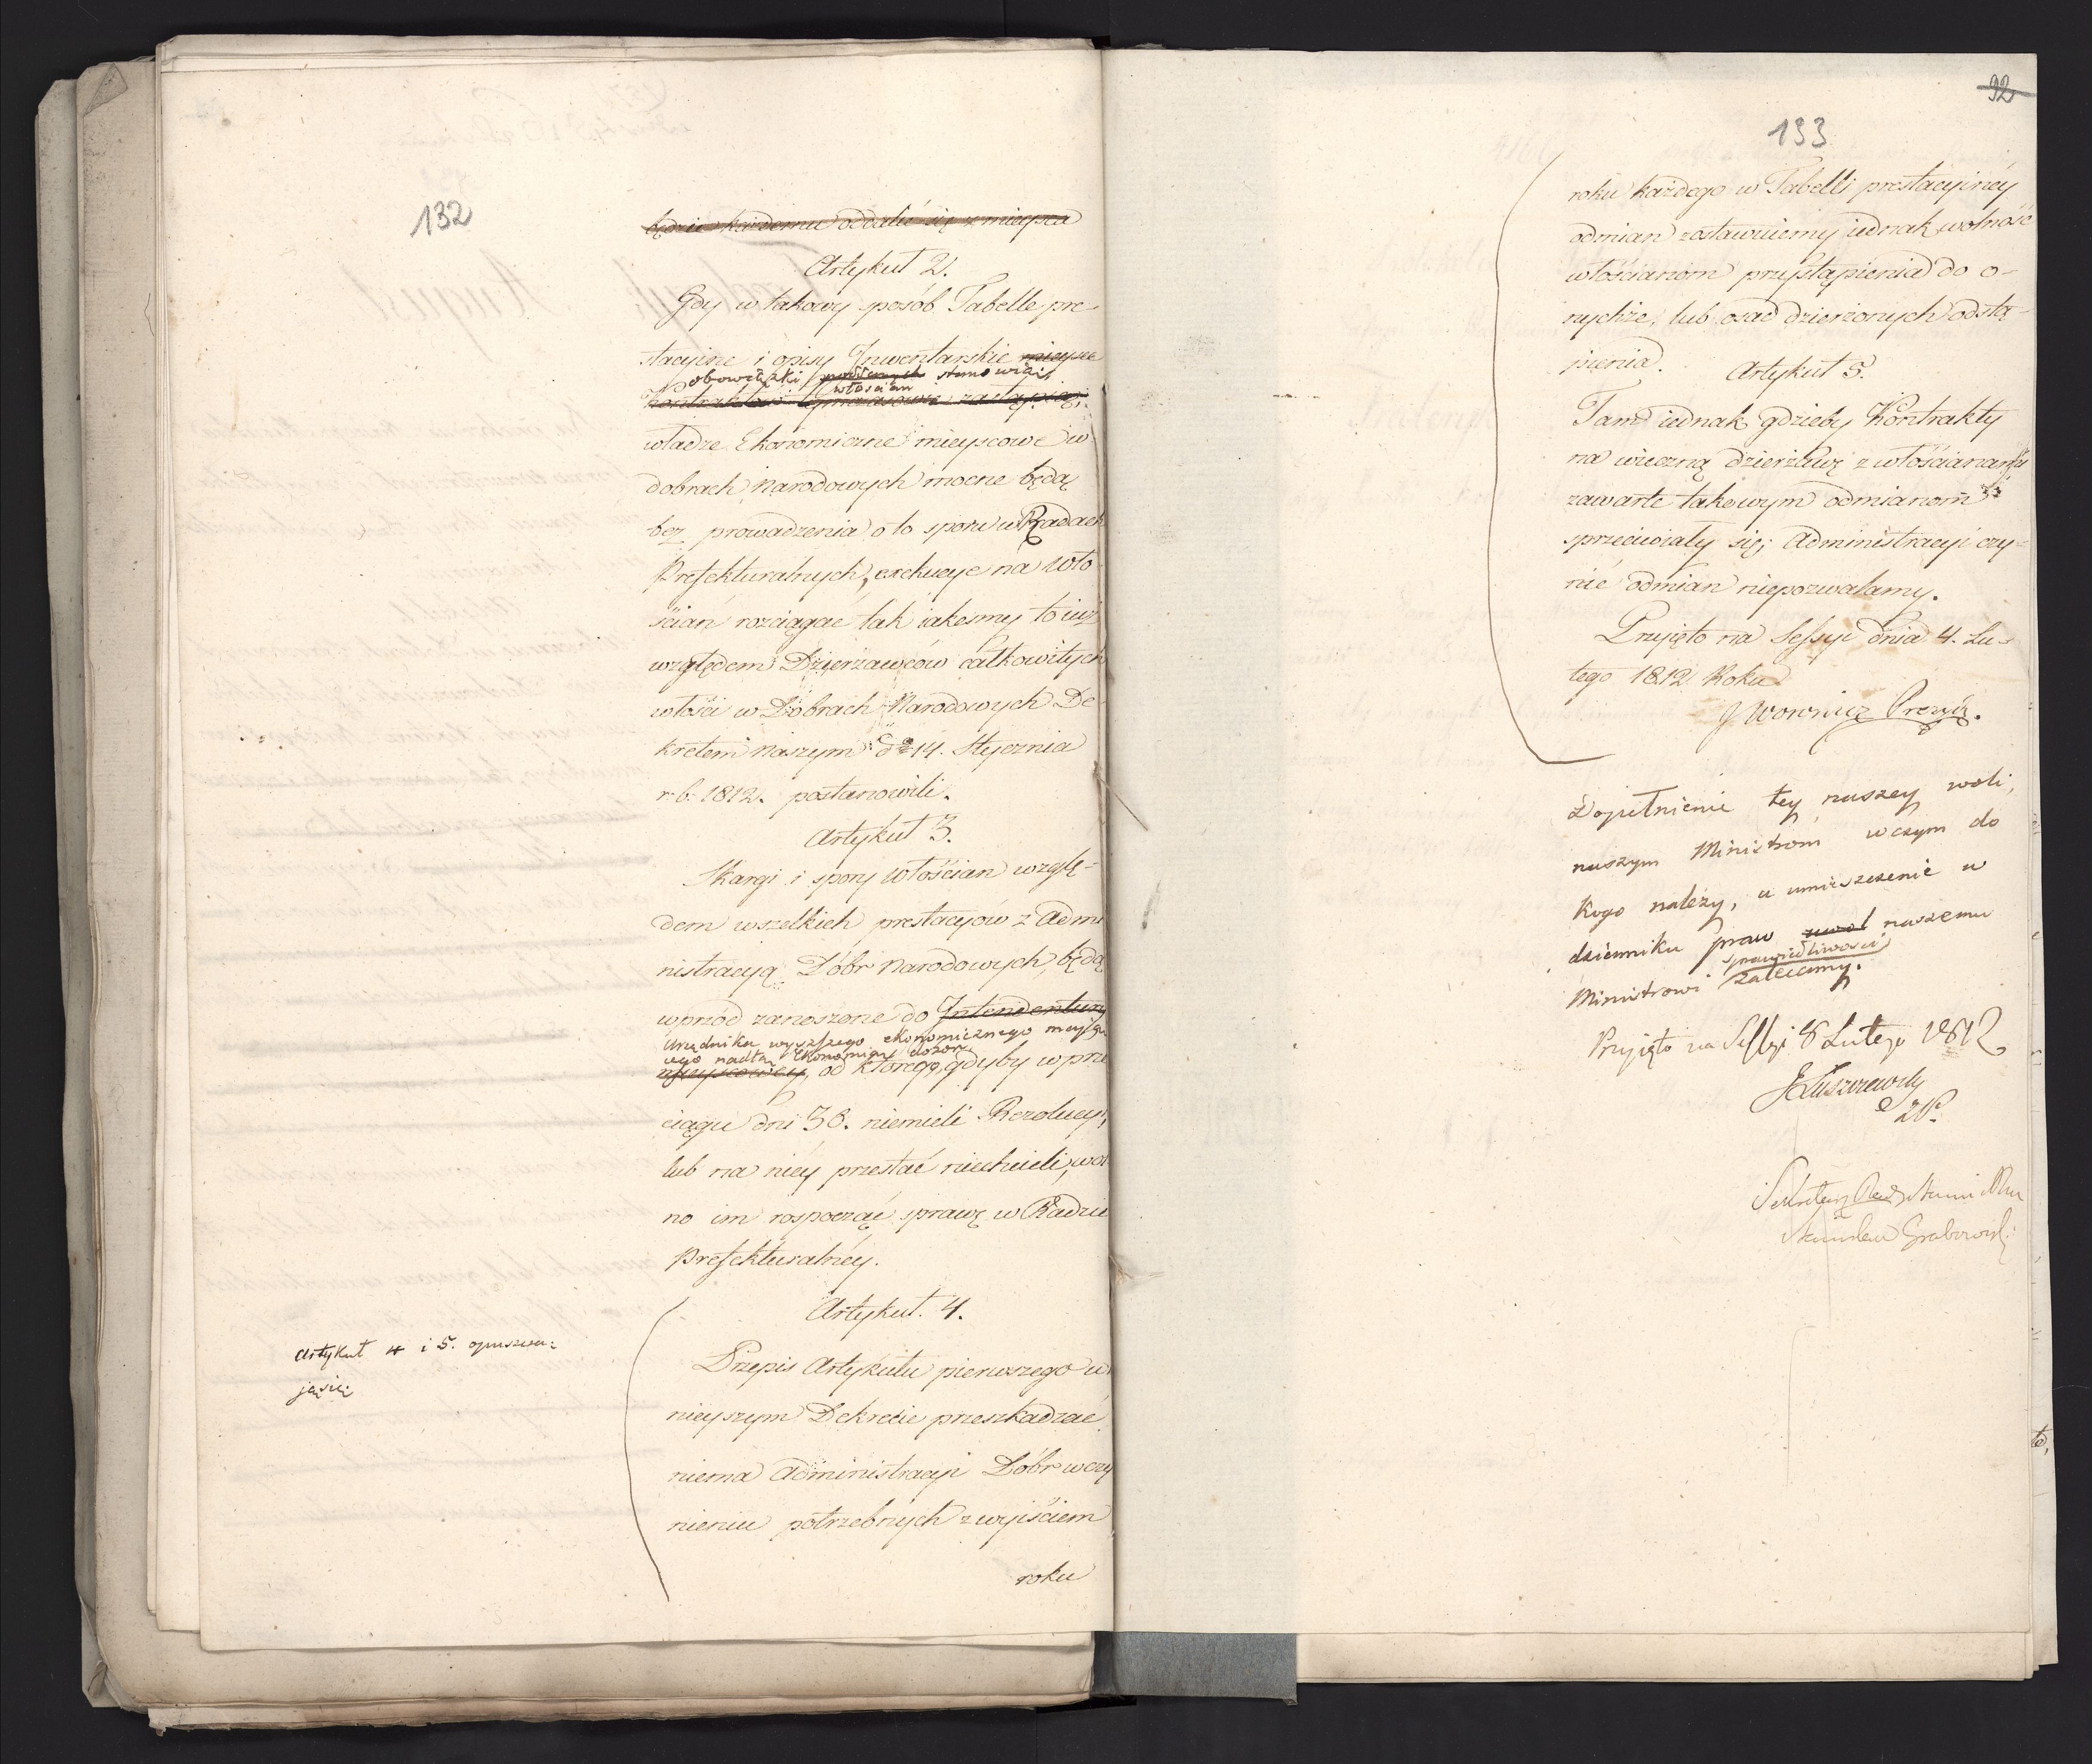 132
będzie każdemu oddalić się z mieysca
Artykuł 2.
Gdy w takowy sposób Tabelle pre-
stacyine i opisy Inwentarskie mieysce
obowiązki włościan stanowią,
Kontraktów tymczasowie zastąpią;
władze Ekonomiczne mieyscowe w
dobrach Narodowych mocne będą
bez prowadzenia o to sporu w Radach
Prefekturalnych, exekucye na Wło-
ścian rozciągać tak iakeśmy to iuż
względem Dzierżawców całkowitych
włości w Dobrach Narodowych De-
kretem Naszym d. 14. Stycznia
r. b. 1812. postanowili.
Artykuł 3.
Skargi i spory Włościan wzglę-
dem wszelkich prestacyiów z Admi
nistracyą Dóbr Narodowych, będą
wprzód zanoszone do Intendentury
Urzędnika wyższego ekonomicznego mayą
cego nad tą Ekonomią dozór,
mieyscowey, od którego, gdyby w prze
ciągu dni 30. niemieli Rezolucyi,
lub na niéy przestać niechcieli, wol
no im rospocząć sprawę w Radzie
Prefekturalnéy.
Artykuł. 4.
Przepis Artykułu pierwszego w
nieyszym Dekrecie przeszkadzać
niema Administracyi Dóbr w czy
nieniu potrzebnych z wyiściem
roku
Artykuł 4 i 5. opuszcza-
ją się
92
133
roku każdego w Tabelli prestacyinéy
odmian zostawuiemy iednak wolność
włościanom przystąpienia do o-
nychże, lub osad dzierżonych odstą-
pienia.
Artykuł 5.
Tam iednak gdzieby Kontrakty
na wieczną dzierżawę z włościanami
zawarte takowym odmianom
sprzeciwiały się; Administracyi czy-
nić odmian niepozwalamy.
Przyięto na Sessyi dnia 4. Lu-
tego 1812 Roku
J Woronicz Prezyd.
Dopełnienie tey naszey woli,
naszym Ministrom w czym do
Kogo należy, a umieszczenie w
dzienniku praw naszemu
sprawiedliwości
Ministrowi zalecamy.
Przyięto na Sessyi 8 Lutego 1812
J Łuszczewski
Sekretarz Rady Stanu
Stanisław Grabowski